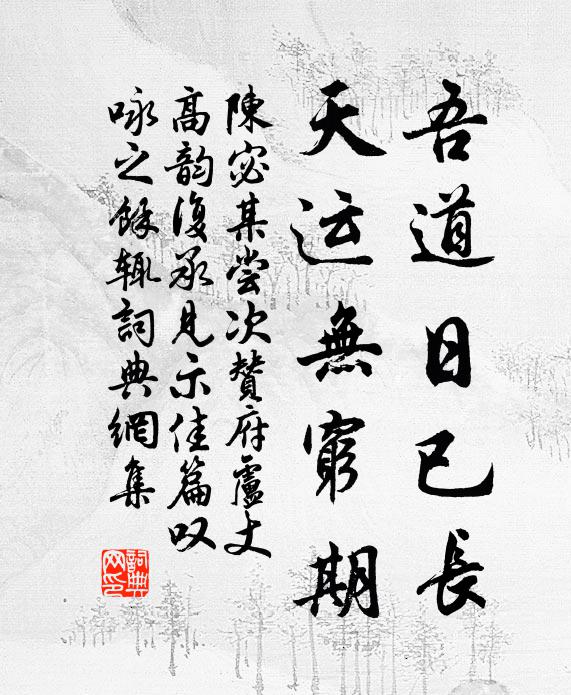 吾道日已長
天运無窮期
陳宓某嘗次贊府盧丈
高韵復承見示佳篇叹
咏之餘辄詞典網集
詞典
网印